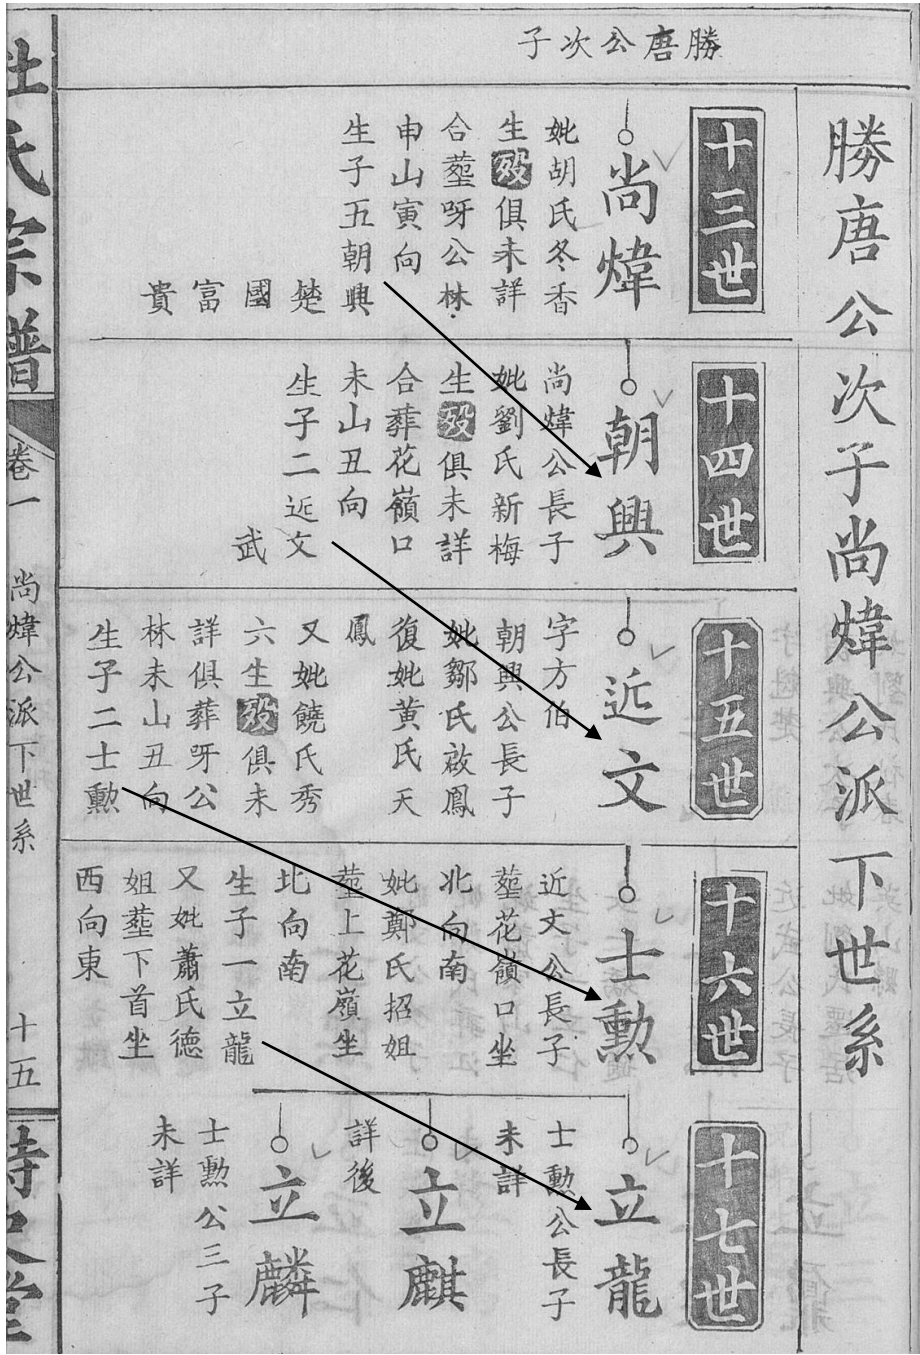 勝唐公次子
勝唐公次子尚煒公派下世系
十三世
尚煒
妣胡氏冬香
生歿俱未詳
合塟呀公林
申山寅向
生子五朝興
楚
國
富
貴
十四世
朝興
尚煒公長子
妣劉氏新梅
生歿俱未詳
合葬花嶺口
未山丑向
生子二近文
武
十五世
近文
字方伯
朝興公長子
妣鄒氏啟鳳
復妣黃氏天
鳳
又妣饒氏秀
六生歿俱未
詳俱葬呀公
林未山丑向
生子二士勳
十六世
士勳
近文公長子
塟花嶺口坐
北向南
妣鄭氏招姐
塟上花嶺坐
北向南
生子一立龍
又妣蕭氏德
姐塟下首坐
西向東
十七世
立龍
士勳公長子
未詳
立麒
詳後
立麟
士勳公三子
未詳
杜氏宗譜
卷一
尚煒公派下世系
十五